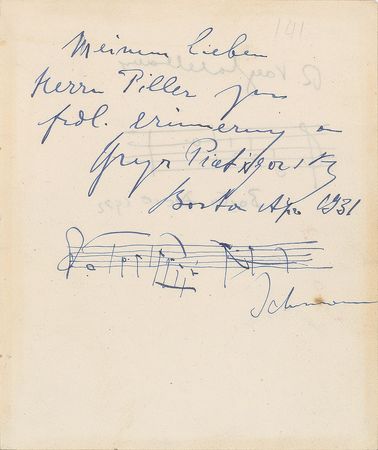 Meinem lieben
Herrn Piller zur
frdl. erinnerung an
Gregor Piatigorsky
Boston Apr 1931
Schumann